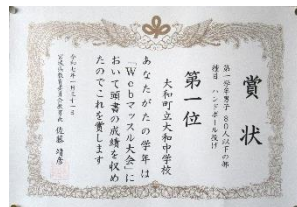 賞状
第一学年男子 80人以下の部
種目 ハンドボール投げ
第一位
大和町立大和中学校
あなたがたの学年は
「Webマッスル大会」に
おいて頭書の成績を収め
たのでこれを賞します
令和七年一月三十一日
宮城県教育委員会教育長 佐藤靖彦